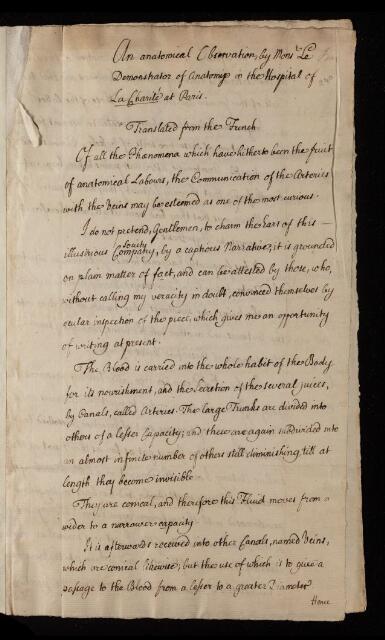 An anatomical Observation, by Monsr. Le
Demonstrator of Anatomy in the Hospital of
La Charité at Paris.
Translated from the French
Of all the Phænomena which have hitherto been the fruit
of anatomical Labours, the Communication of the Arteries
with the Veins may be esteemed as one of the most curious.
I do not pretend, Gentlemen, to charm the Ears of this
Society
illustrious Company, by a captious Narrative; it is grounded
on plain matter of fact, and can be attested by those, who,
without calling my veracity in doubt, convinced themselves by
ocular inspection of the piece, which gives me an opportunity
of writing at present.
The Blood is carried into the whole habit of the Body
for its nourishment, and the Secretion of the several juices,
by Canals, called Arteries. The large Trunks are divided into
others of a lesser Capacity; and these are again subdivided into
an almost infinite number of others still diminishing, till at
length they become invisible.
They are conical, and therefore this Fluid moves from a
wider to a narrower capacity.
It is afterwards received into other Canals, named Veins,
which are conical likewise; but the use of which is to give a
passage to the Blood from a lesser to a greater Diameter
Hence